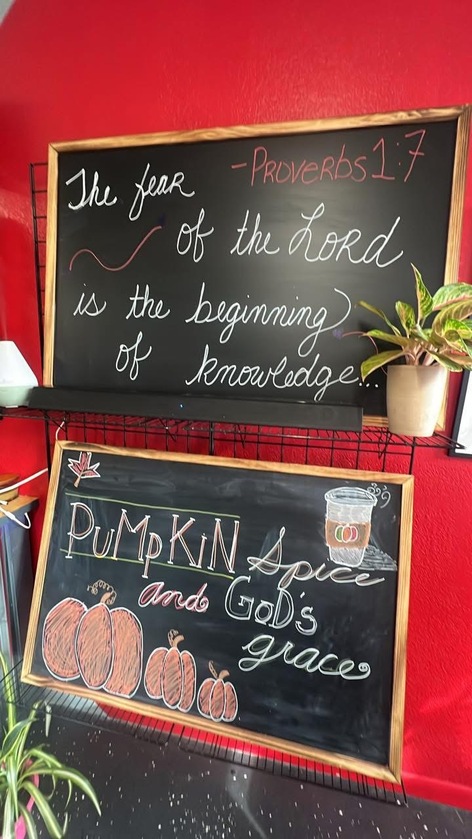 The fear -Proverbs 1:7
of the Lord
is the beginning
of knowledge...
PuMpKiN Spice
and GoD's
grace